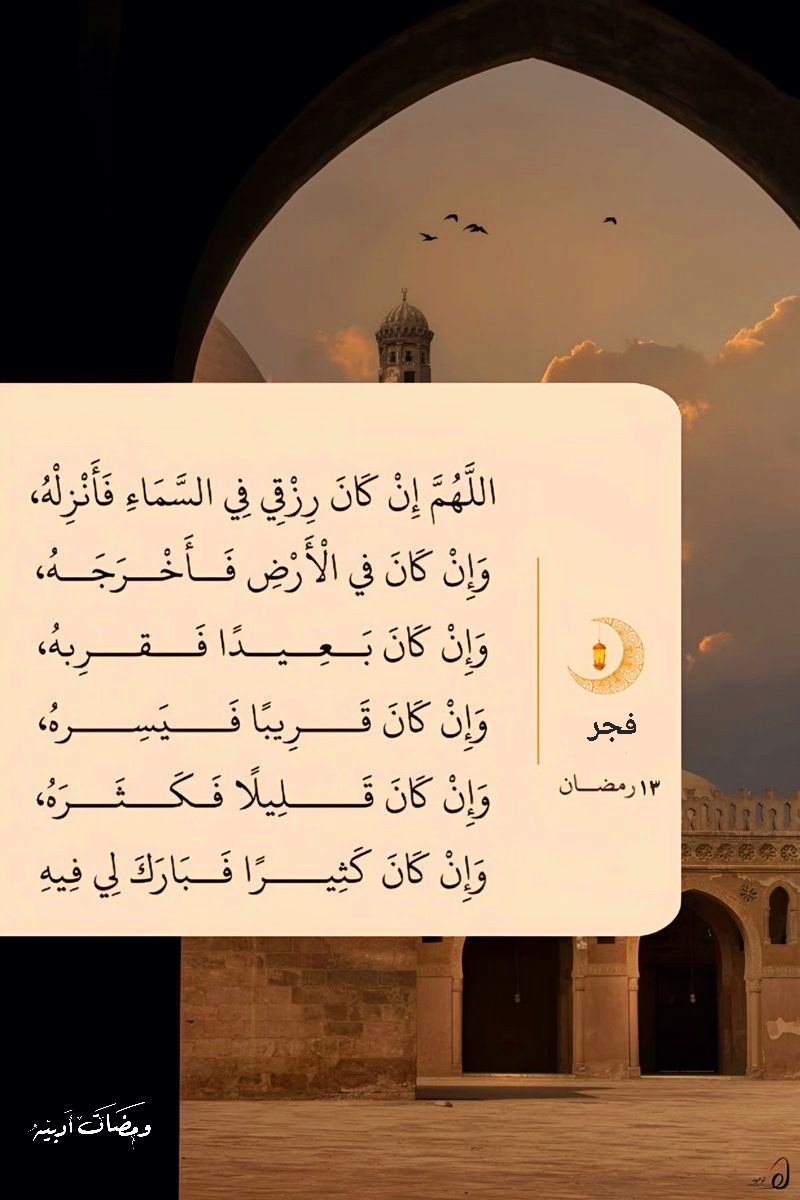 اللَّهُمَّ إِنْ كَانَ رِزْقِي فِي السَّمَاءِ فَأَنْزِلْهُ،
وَإِنْ كَانَ في الْأَرْضِ فَأَخْرَجَهُ،
وَإِنْ كَانَ بَعِيدًا فَقرِبهُ،
وَإِنْ كَانَ قَرِيبًا فَيَسِرهُ،
وَإِنْ كَانَ قَلِيلًا فَكَثَرَهُ،
وَإِنْ كَانَ كَثِيرًا فَبَارَكَ لِي فِيهِ
فجر
١٣ رمضان